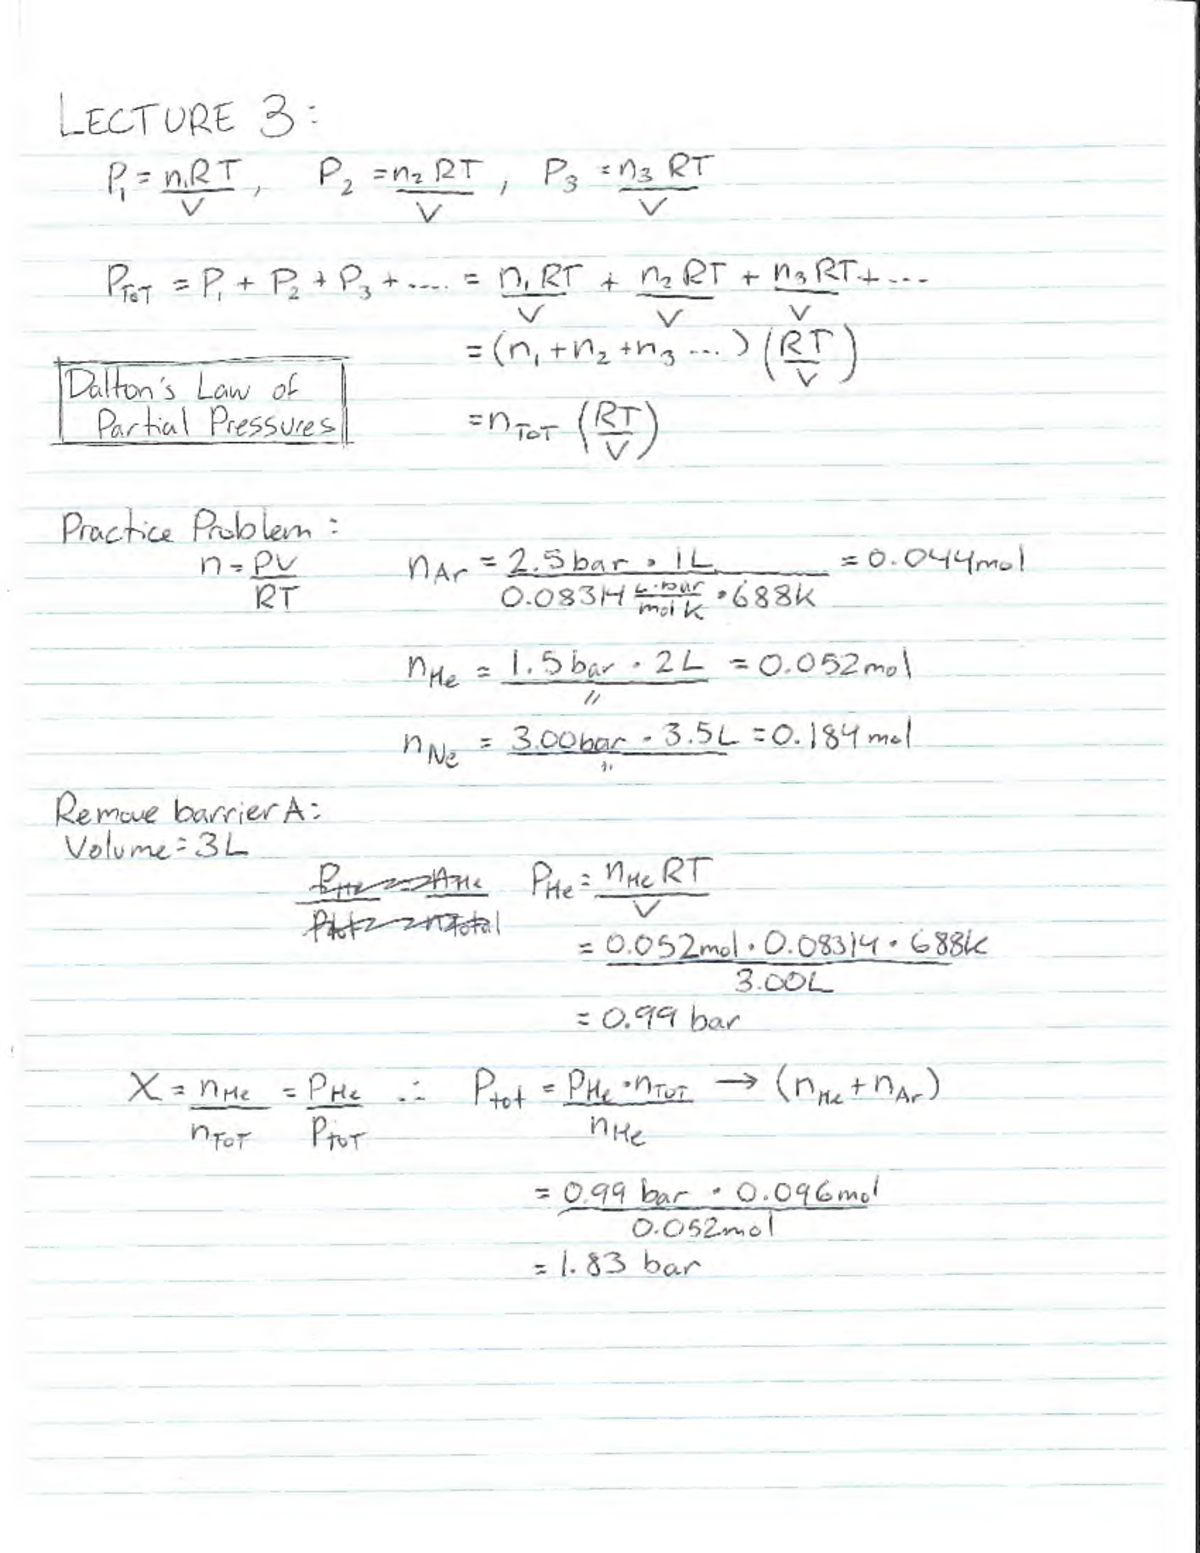 LECTURE 3:
P₁ = n₁RT/V , P₂ = n₂RT/V , P₃ = n₃RT/V
P_TOT = P₁ + P₂ + P₃ + .... = n₁RT/V + n₂RT/V + n₃RT/V + ....
= (n₁ + n₂ + n₃ ...) (RT/V)
Dalton's Law of
Partial Pressures
= n_TOT (RT/V)
Practice Problem:
n = PV/RT n_Ar = 2.5 bar · 1L / 0.08314 L·bar/mol K · 688K = 0.044 mol
n_He = 1.5 bar · 2L / " = 0.052 mol
n_Ne = 3.00 bar · 3.5L / " = 0.184 mol
Remove barrier A:
Volume = 3L
P_He = n_He RT/V
= 0.052 mol · 0.08314 · 688K / 3.00L
= 0.99 bar
X = n_He/n_TOT = P_He/P_TOT ∴ P_tot = P_He · n_TOT/n_He → (n_He + n_Ar)
= 0.99 bar · 0.096 mol / 0.052 mol
= 1.83 bar